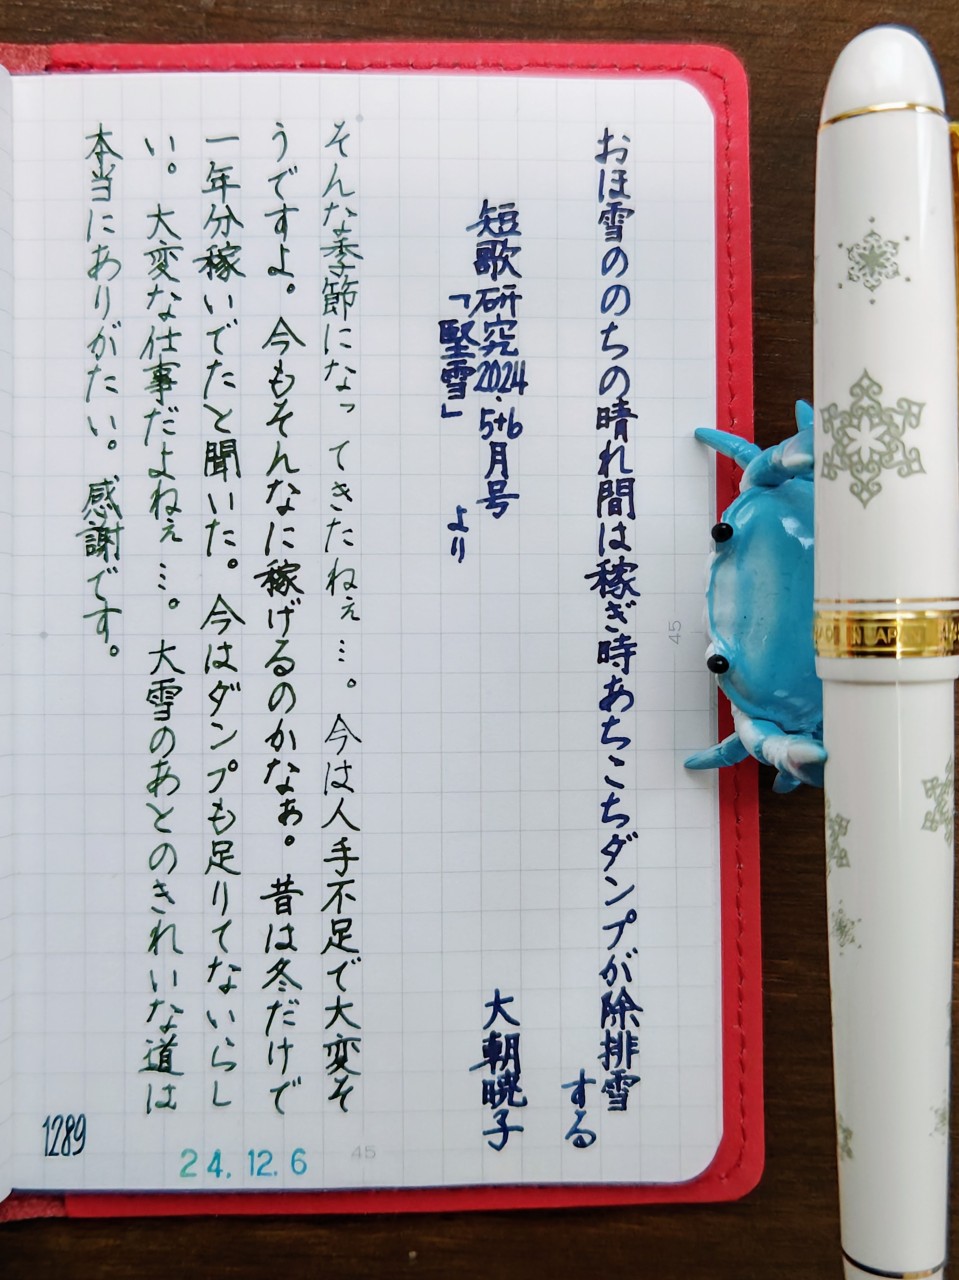 おほ雪ののちの晴れ間は稼ぎ時あちこちダンプが除排雪
する
短歌研究2024.5+6月号
大朝暁子
「堅雪」より
そんな季節になってきたねぇ…。今は人手不足で大変そ
うですよ。今もそんなに稼げるのかなぁ。昔は冬だけで
一年分稼いでたと聞いた。今はダンプも足りてないらし
い。大変な仕事だよねぇ…。大雪のあとのきれいな道は
本当にありがたい。感謝です。
1289
24.12.6
45
45
IN JAPAN